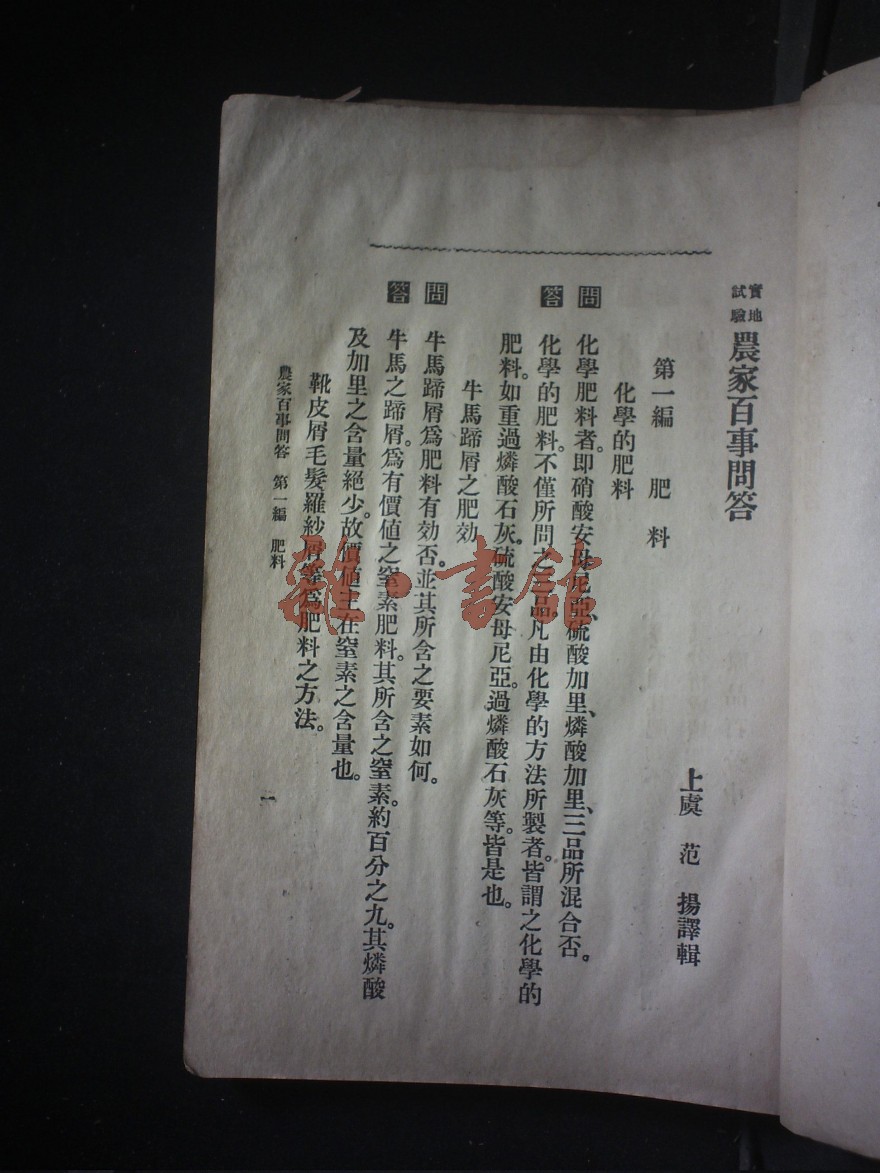 實地試驗 農家百事問答
上虞 范 揚譯輯
第一編 肥 料
化學的肥料
問 化學肥料者。即硝酸安母尼亞、硫酸加里、燐酸加里、三品所混合否。
答 化學的肥料。不僅所問之三品。凡由化學的方法所製者。皆謂之化學的
肥料。如重過燐酸石灰。硫酸安母尼亞。過燐酸石灰等。皆是也。
牛馬蹄屑之肥効
問 牛馬蹄屑爲肥料有効否。並其所含之要素如何。
答 牛馬之蹄屑。爲有價値之窒素肥料。其所含之窒素。約百分之九。其燐酸
及加里之含量絕少。故價値主在窒素之含量也。
靴皮屑毛髮羅紗屑等爲肥料之方法。
農家百事問答 第一編 肥料
一
雜·書館